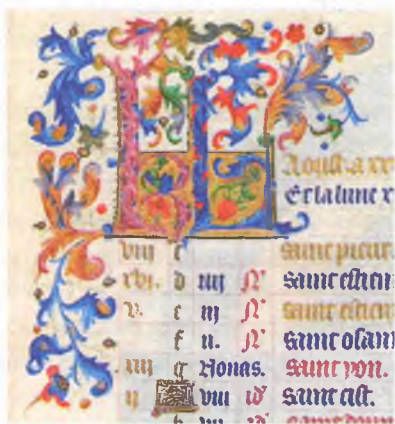 KL
Aoust. a xx
Et la lune x
viij c saint pierre.
xvi. d iiij N' saint estien
v. e iij N' saint estien
f ii. N' saint osam
xiij g Nonas. saint yon.
ij viii id' saint sist.
b vii id' saint dom